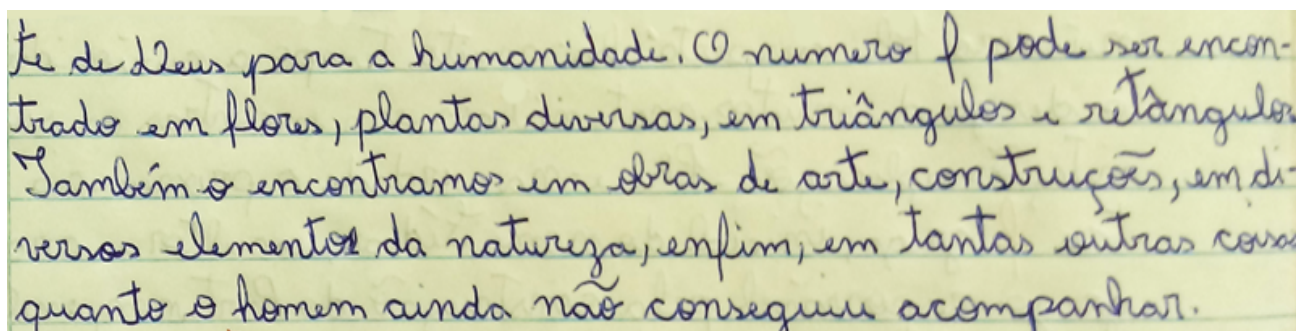 te de Deus para a humanidade. O numero f pode ser encon-
trado em flores, plantas diversas, em triângulos e retângulos
Também o encontramos em obras de arte, construções, em di-
versos elementos da natureza, enfim, em tantas outras coisas
quanto o homem ainda não conseguiu acompanhar.